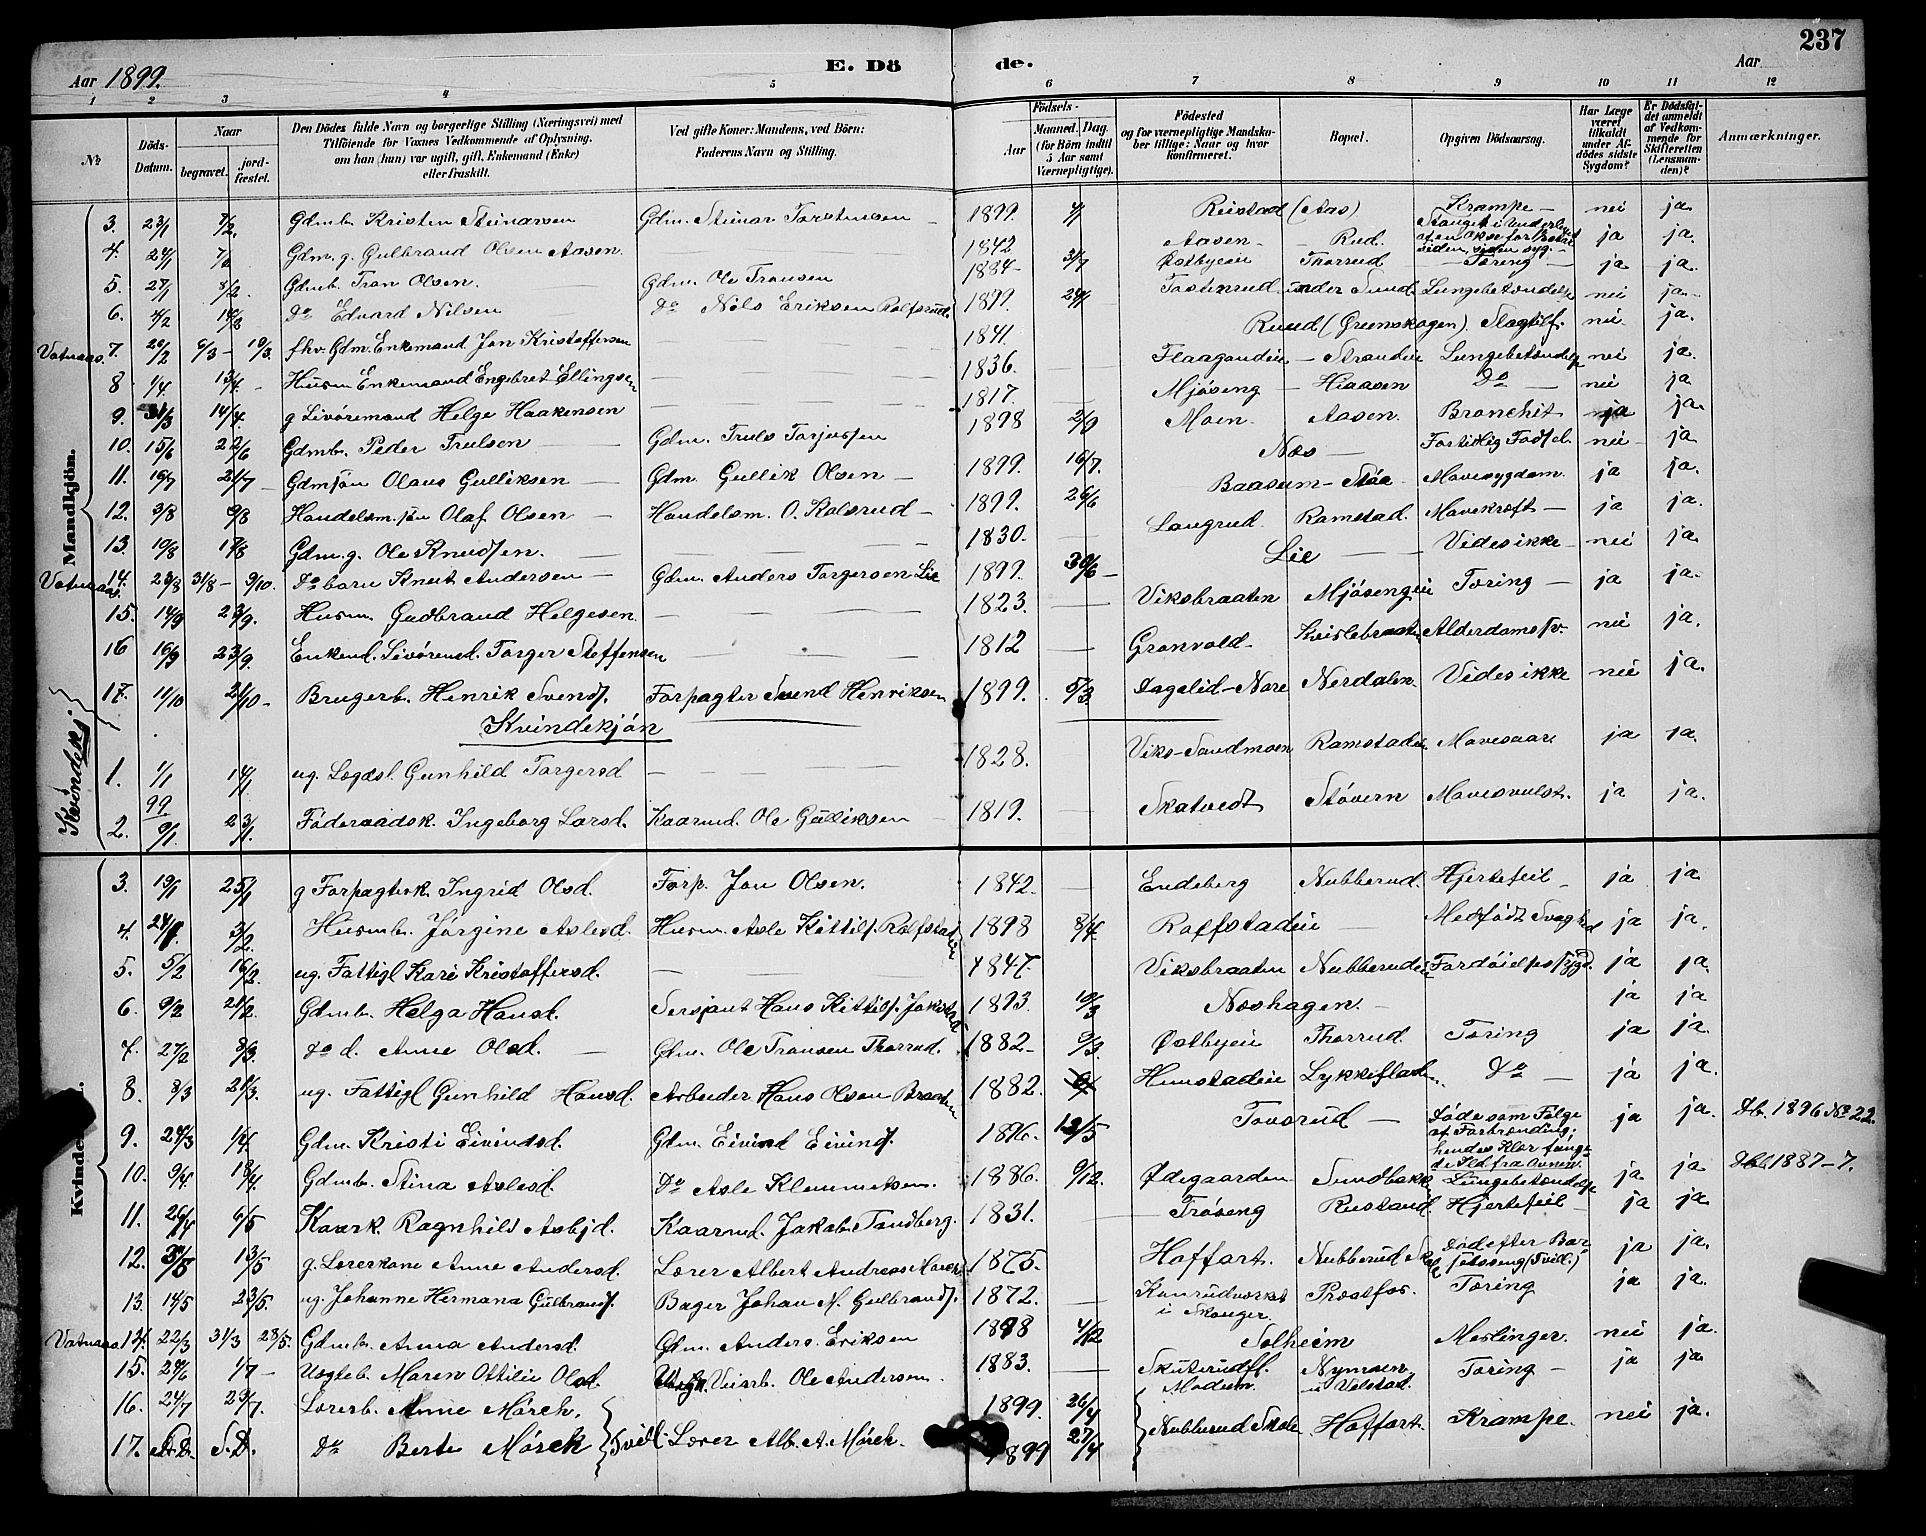 237
Aar 1899. E. Dö de. Aar
1 2 3 4 5 6 7 8 9 10 11 12
No
Döds-Datum.
Naar begravet. jordfæstet.
Den Dödes fulde Navn og borgerlige Stilling (Næringsvei) med Tilföiende for Voxnes Vedkommende af Oplysning, om han (hun) var ugift, gift, Enkemand (Enke) eller fraskilt.
Ved gifte Koner: Mandens, ved Börn: Faderens Navn og Stilling.
Födsels- Aar Maaned. Dag. (for Börn indtil 5 Aar samt Værnepligtige).
Födested og for værnepligtige Mandskaber tillige: Naar og hvor konfirmeret.
Bopæl.
Opgiven Dödsaarsag.
Har Læge været tilkaldt under Afdödes sidste Sygdom?
Er Dödsfaldet anmeldt af Vedkommende for Skifteretten (Lensmanden)?
Anmærkninger.
Mandkjön.
3. 23/1 7/2. Gdmb. Kristen Steinarsen Gdm. Steinar Torstensen 1899. 4/1 Rustad (Aas) Krampe nei ja.
4. 24/1 7/2 Gdm. g. Gulbrand Olsen Aasen 1842 Aasen Rud. Stanget i Underlivet af en Okse for siden, siden syg. ja ja.
5. 28/1 8/2. Gdmb. Tran Olsen. Gdm. Ole Transen 1884 3/7 Østbyeie Thorrud Tæring ja ja.
6. 4/2 14/2 Do Edvard Nilsen Do Nils Eriksen Rolfsrud. 1899. 24/1 Tostenrud under Sund. Lungebetændelse nei ja.
Vatnaas 7. 20/2 6/3 19/3. fhv. Gdm. Enkemand Jon Kristoffersen 1841. Ruud (Grenskogen). Slagtilf. nei ja.
8 1/4. 13/4 Husm. Enkemand Engebret Ellingsen 1836. Flaagandeie Strandeie Lungebetændelse nei ja.
9. 31/3 14/4. g Livöremand Helge Haakensen 1817. Mjöseng Hiaasen Do nei ja
10. 15/6 22/6 Gdmb. Peder Trulsen Gdm. Truls Torjussen 1898 2/9 Moen. Aasen. Bronchit ja ja.
11. 16/7 21/7 Gdmsön Olaus Gulliksen Gdm. Gullik Olsen 1899. 16/7. Næs Fortidlig Födsel. nei ja
12. 3/8 9/8 Handelsm. sön Olaf Olsen Handelsm. O. Kolsrud 1899. 26/6 Baasum Stöa Mavesygdom. ja ja.
13. 10/8 17/8 Gdm. g. Ole Knudsen. 1830. Langrud. Ramstad. Mavekræft ja ja.
Vatnaas. 14. 23/8 31/8 9/10. Do barn Knut Andersen Gdm. Anders Torgersen Lie 1899. 30/6 Lie Vides ikke nei ja
15. 14/9 23/9. Husm. Gudbrand Helgesen 1823. Viksbraaten Mjösengeie Tæring ja ja.
16 16/9 23/9. Enkem. Livörem. Torger Steffensen 1812 Grønvold Kvislebraaten Alderdomssv. nei ja.
17. 11/10 21/10 Brugerb. Henrik Svends. Forpagter Svend Henriksen 1899. 5/3 Dagalid-Nore Nerdalen. Vides ikke nei ja.
Kvindekjön
Kvindekj.
1. 1/1 99 14/1 ug. Lægdsl. Gunhild Torgersd 1828. Viks-Sandmoen Ramstadeie Mavesaar ja ja.
2. 9/1. 23/1. Föderaadsk. Ingeborg Larsd. Kaarmd. Ole Gulliksen 1819. Skatvedt Stövern Mavesvulst. ja ja.
Kvindekjön.
3. 19/1 25/1 g Forpagterk. Ingrid Olsd. Forp. Jon Olsen. 1842. Endeberg Nubberud. Hjertefeil ja ja
4. 24/1. 3/2. Husmb. Jörgine Aslesd. Husm. Asle Kittils. Rolfstadeie 1893 8/4. Rolfstadeie Medfödt Svaghed ja ja.
5. 5/2 16/2. ug. Fattigl Kari Kristoffersd. 1847. Viksbraaten Nubberudeie Fordöielsessygd. ja ja.
6 9/2 21/2. Gdmb. Helga Hansd. Sersjant Hans Kittils. Jokstad 1893. 10/3 Næshagen. ja ja
7. 27/2 8/3. Do d. Anne Olsd. Gdm. Ole Transen Thorrud. 1882 9/3. Østbyeie Thorrud. Tæring ja ja.
8. 8/3 21/3. ug. Fattigl Gunhild Hansd. Arbeider Hans Olsen Braaten 1882. Hunstadeie Lykkeflaten. Do ja ja.
9. 24/3 1/4. Gdm. Kristi Eivindsd. Gdm. Eivind Eivinds. 1896. 12/5 Tovsrud Döde som Fölge af Forbrænding; hendes Klær fængede Ild fra Ovnen. ja ja. Db. 1896 No 22.
10. 9/4. 18/4. Gdmb. Stina Aslesd. Do Asle Klemmetsen. 1886. 9/12. Ødegaarden Sundbakk. Lungebetændelse ja ja Db. 1887-7.
11. 26/4 6/5 Kaark. Ragnhild Asbjd. Kaarmd. Jakob Tandberg. 1831. Tröseng Rustand. Hjertefeil ja ja
12. 3/5 13/5 g. Lærerkone Anne Andersd. Lærer Albert Andreas Mørch 1875. Hoffart. Nubberud Skole Död efter Barselsseng (Tvill.) ja ja.
13. 14/5 23/5. ug. Johanne Hermana Gulbrands. Bager Johan M. Gulbrands. 1872. Konrudværket i Skonger. Prostfos. Tæring ja ja.
Vatnaas 14. 22/3 31/3 28/5. Gdmb. Anna Andersd. Gdm. Anders Eriksen 1898 4/12 Solheim Meslinger. nei ja.
15. 24/6 1/7 Uægteb. Maren Ottilie Olsd. Veiarb. Ole Andersen. 1883. Skuterudfl. Modum. Nymoen u Velstad. Tæring ja ja
16. 24/7 29/7. Lærerb. Anne Mörch. Tvill. Lærer Alb. A. Mörch. 1899. 26/4 Nubberud Skole Hoffart. Krampe. nei ja.
17. S.D. S.D. Do Berte Mörch 1899 27/4